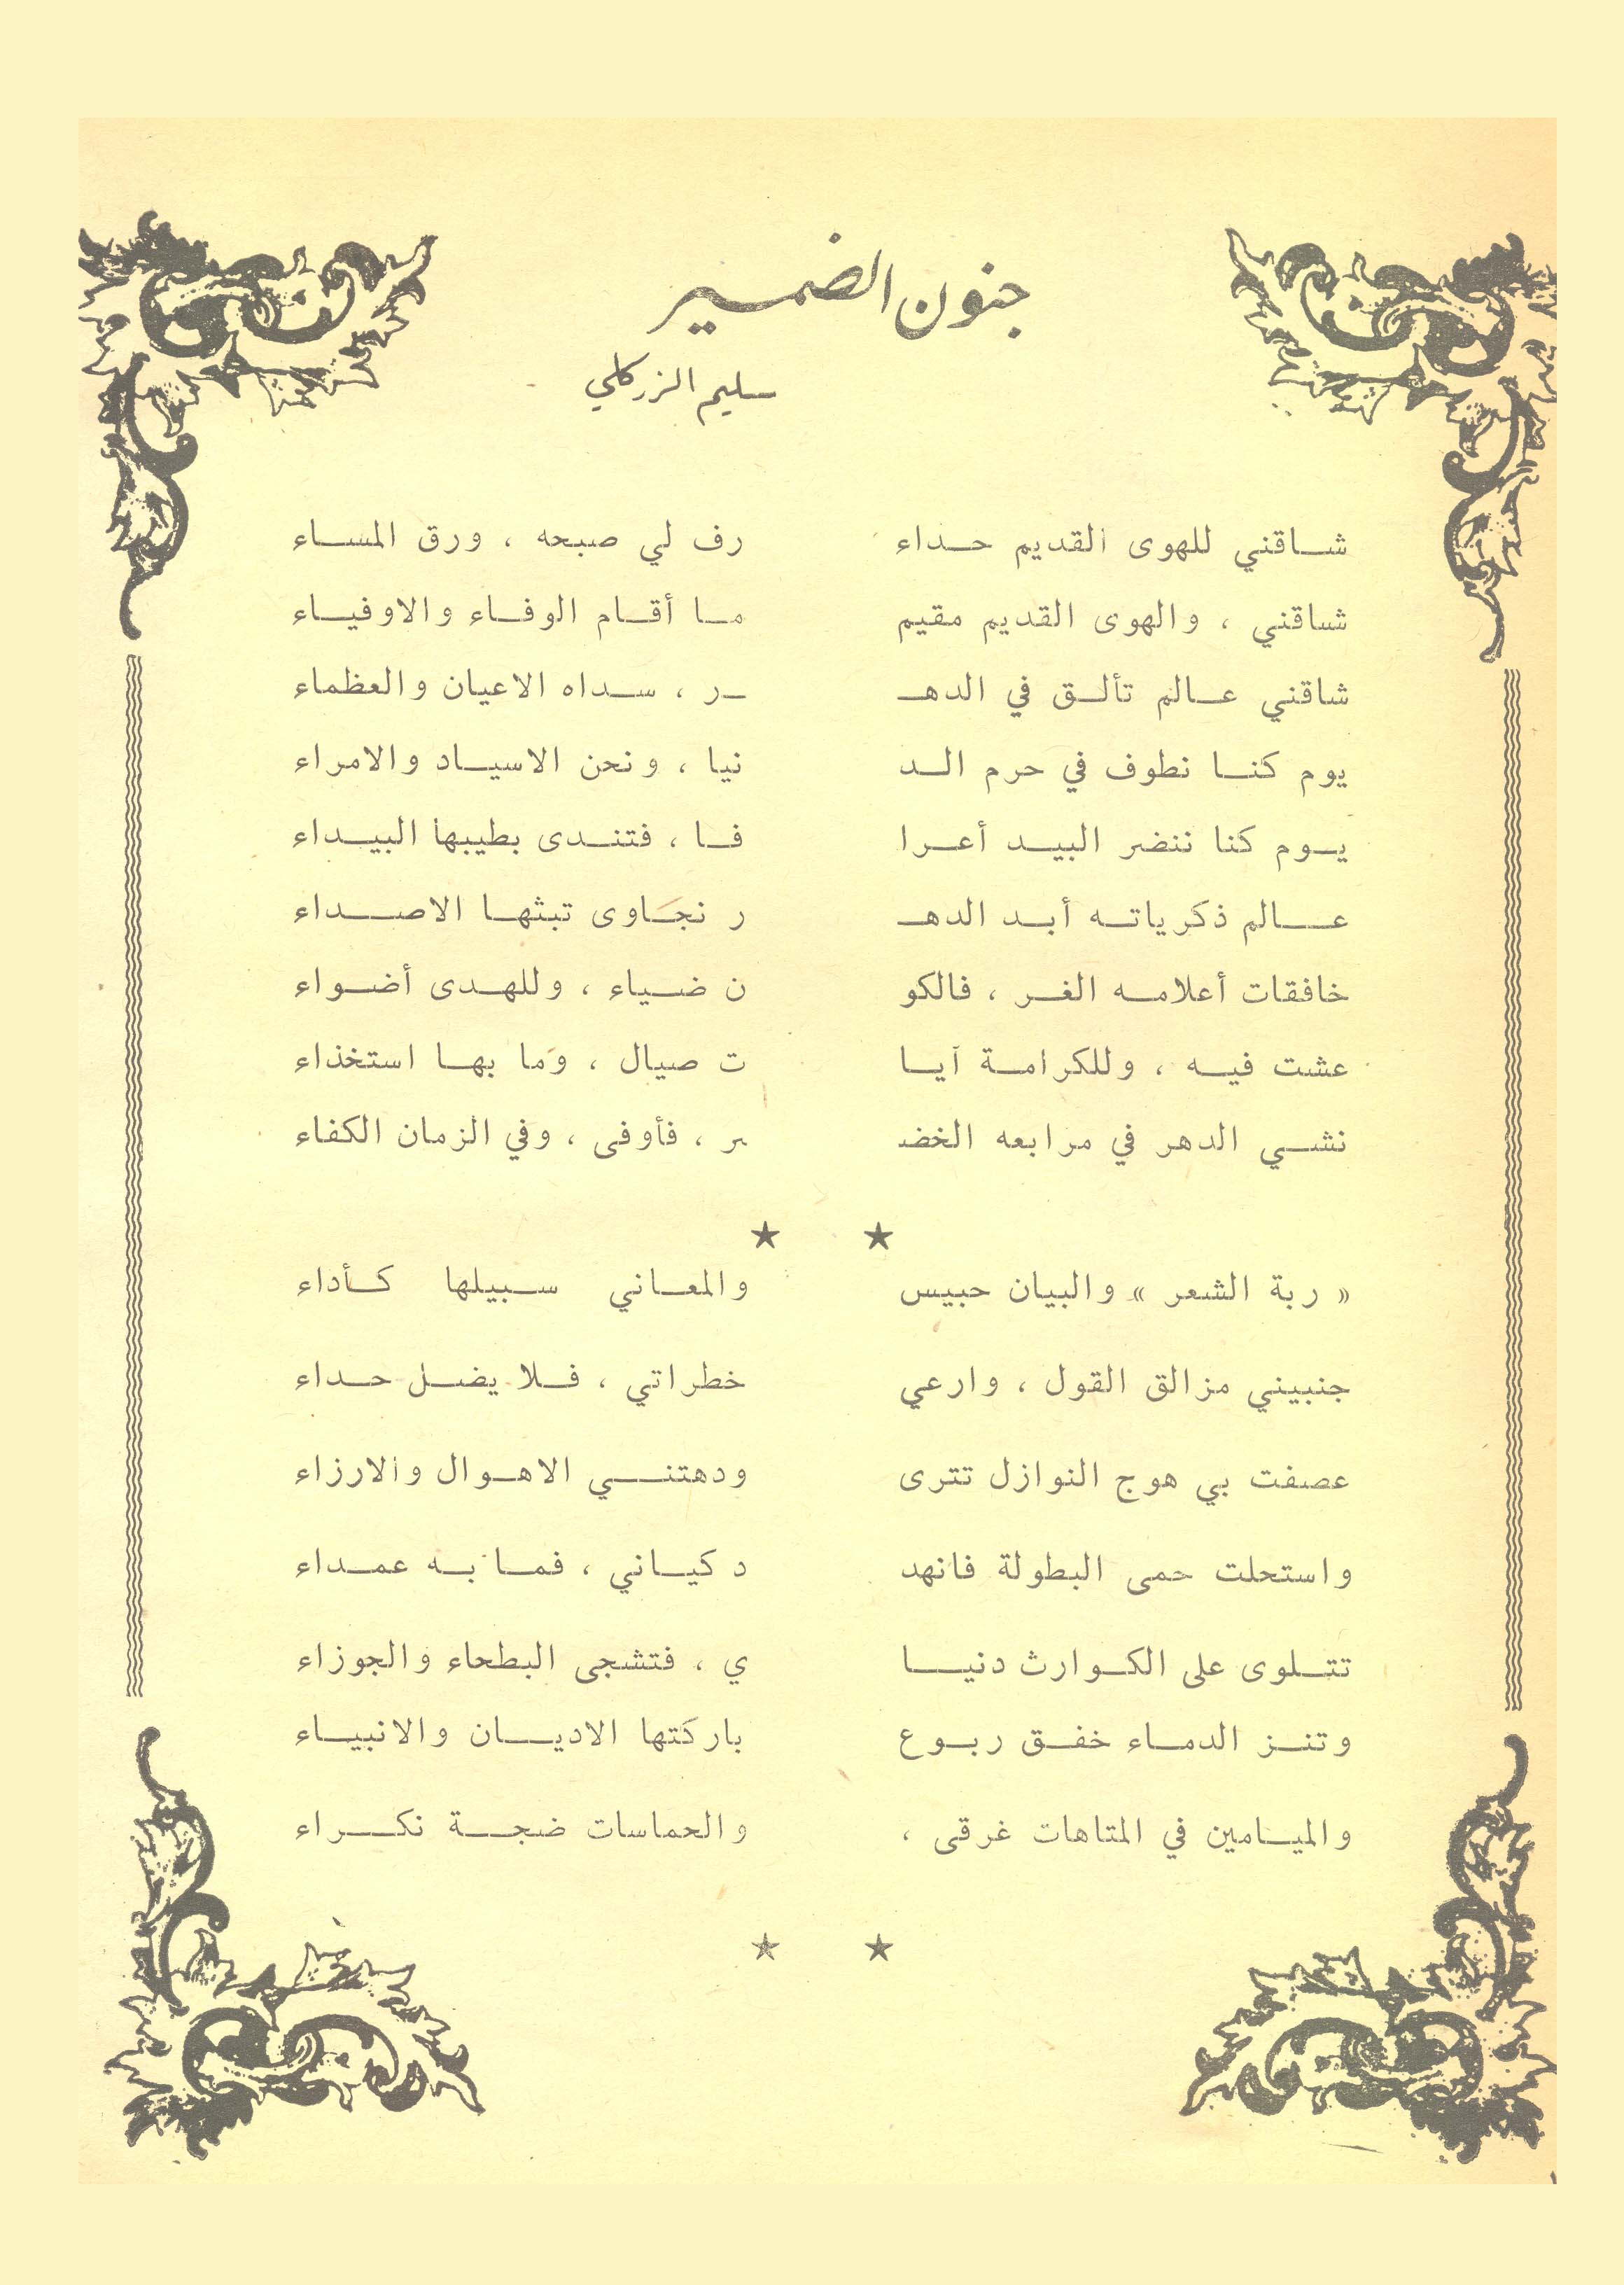 جنون الضمير
سليم الزركلي
شاقني للهوى القديم حداء رف لي صبحه ، ورق المساء
شاقني ، والهوى القديم مقيم ما أقام الوفاء والاوفياء
شاقني عالم تألق في الدهـ ـر ، سداه الاعيان والعظماء
يوم كنا نطوف في حرم الد نيا ، ونحن الاسياد والامراء
يوم كنا ننضر البيد أعرا فا ، فتندى بطيبها البيداء
عالم ذكرياته أبد الدهـ ر نجاوى تبثها الاصداء
خافقات أعلامه الغر ، فالكو ن ضياء ، وللهدى أضواء
عشت فيه ، وللكرامة آيا ت صيال ، وما بها استخذاء
نشي الدهر في مرابعه الخضـ ـر ، فأوفى ، وفي الزمان الكفاء
★ ★
« ربة الشعر » والبيان حبيس والمعاني سبيلها كأداء
جنبيني مزالق القول ، وارعي خطراتي ، فلا يضل حداء
عصفت بي هوج النوازل تترى ودهتني الاهوال والارزاء
واستحلت حمى البطولة فانهد د كياني ، فما به عمداء
تتلوى على الكوارث دنيا ي ، فتشجى البطحاء والجوزاء
وتنز الدماء خفق ربوع باركتها الاديان والانبياء
والميامين في المتاهات غرقى ، والحماسات ضجة نكراء
★ ★